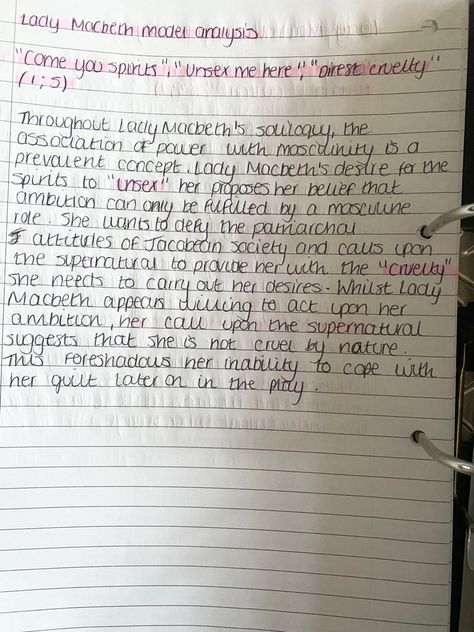 Lady Macbeth model analysis
"Come you spirits", "Unsex me here", "Direst cruelty"
(1;5)
Throughout Lady Macbeth's soliloquy, the
association of power with masculinity is a
prevalent concept. Lady Macbeth's desire for the
spirits to "unsex" her proposes her belief that
ambition can only be fulfilled by a masculine
role. She wants to defy the patriarchal
attitudes of Jacobean society and calls upon
the supernatural to provide her with the "cruelty"
she needs to carry out her desires. Whilst Lady
Macbeth appears willing to act upon her
ambition, her call upon the supernatural
suggests that she is not cruel by nature.
This foreshadows her inability to cope with
her guilt later on in the play.